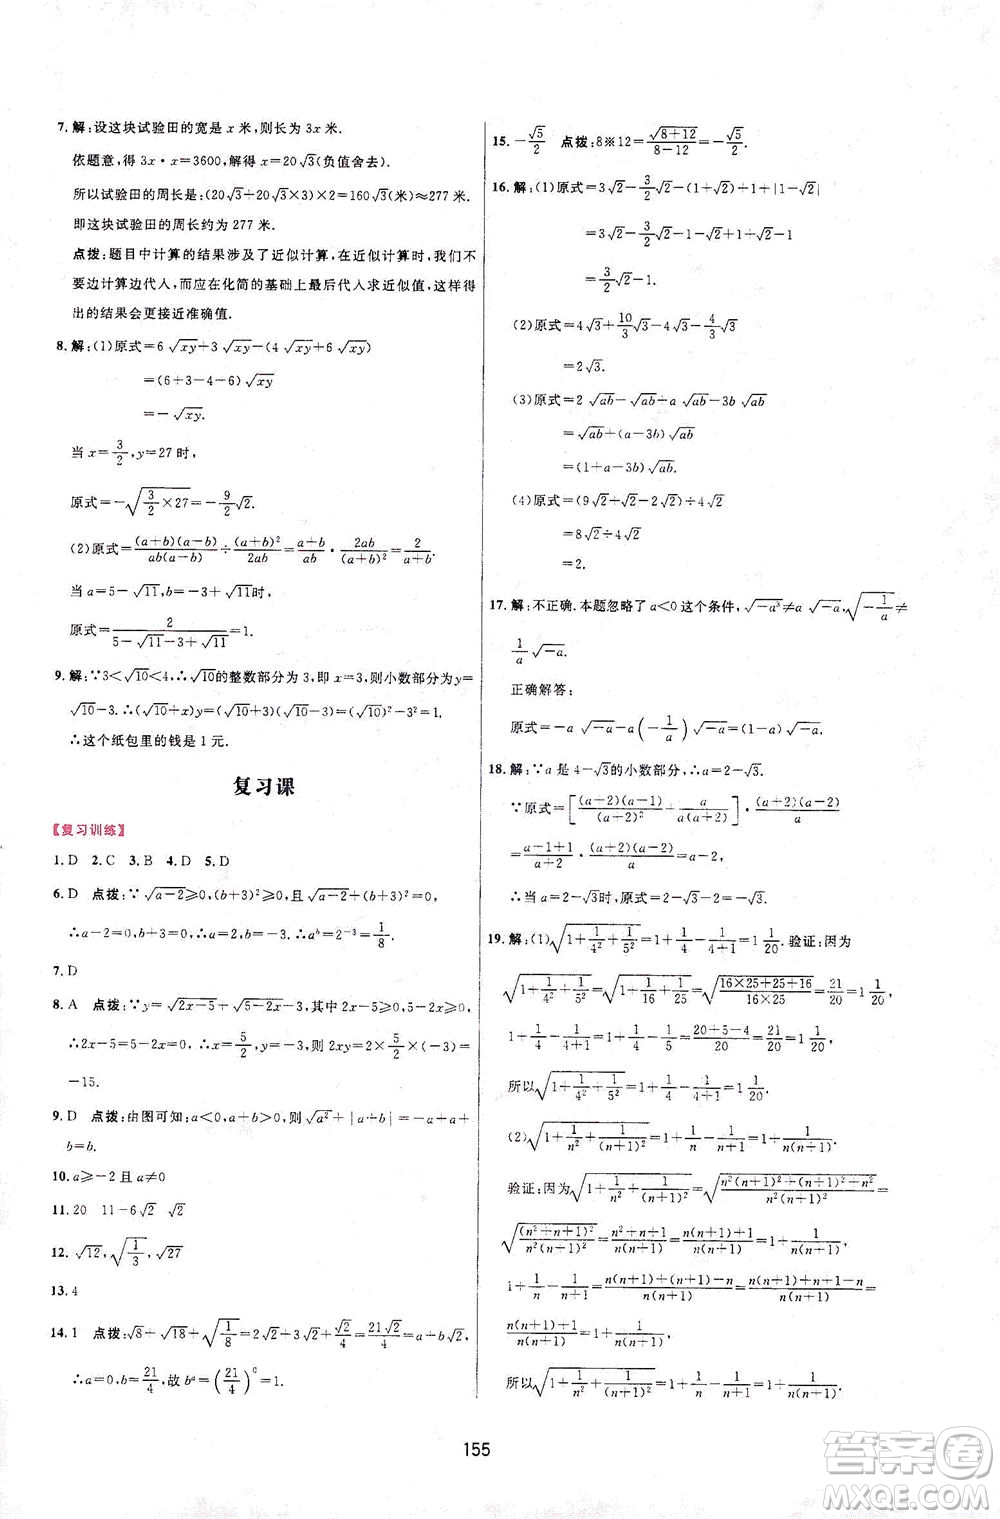 7. 解:设这块试验田的宽是 x 米,则长为 3x 米.
依题意,得 3x·x=3600,解得 x=20√3(负值舍去).
所以试验田的周长是:(20√3+20√3×3)×2=160√3(米)≈277 米.
即这块试验田的周长约为 277 米.
点拨:题目中计算的结果涉及了近似计算,在近似计算中,我们不
要边计算边代入,而应在化简的基础上最后代入求近似值,这样得
出的结果会更接近准确值.
8. 解:(1)原式=6√xy+3√xy-(4√xy+6√xy)
=(6+3-4-6)√xy
=-√xy.
当 x=3/2,y=27 时,
原式=-√(3/2×27)=-9/2√2.
(2)原式=(a+b)(a-b)/ab(a-b)÷(a+b)²/2ab=a+b/ab·2ab/(a+b)²=2/a+b.
当 a=5-√11,b=-3+√11时,
原式=2/5-√11-3+√11=1.
9. 解:∵3<√10<4,∴√10的整数部分为 3,即 x=3,则小数部分为 y=
√10-3.∴(√10+x)y=(√10+3)(√10-3)=(√10)²-3²=1.
∴这个纸包里的钱是 1 元.
复习课
【复习训练】
1. D 2. C 3. B 4. D 5. D
6. D 点拨:∵√(a-2)≥0,(b+3)²≥0,且√(a-2)+(b+3)²=0,
∴a-2=0,b+3=0,∴a=2,b=-3,∴aᵇ=2⁻³=1/8.
7. D
8. A 点拨:∵y=√(2x-5)+√(5-2x)-3,其中2x-5≥0,5-2x≥0,
∴2x-5=5-2x=0,∴x=5/2,y=-3,则 2xy=2×5/2×(-3)=
-15.
9. D 点拨:由图可知:a<0,a+b>0,则√a²+|a+b|=-a+a+
b=b.
10. a≥-2 且 a≠0
11. 20 11-6√2 √2
12. √12,√(1/3),√27
13. 4
14. 1 点拨:√8+√18+√(1/8)=2√2+3√2+√2/4=21√2/4=a+b√2,
∴a=0,b=21/4,故 bᵃ=(21/4)⁰=1.
15. -√5/2 点拨:8※12=√(8+12)/8-12=-√5/2.
16. 解:(1)原式=3√2-3/2√2-(1+√2)+|1-√2|
=3√2-3/2√2-1-√2+√2-1

=3/2√2-1.
(2)原式=4√3+10/3√3-4√3-4/3√3
=2√3.
(3)原式=2√ab-√ab+a√ab-3b√ab
=√ab+(a-3b)√ab
=(1+a-3b)√ab.
(4)原式=(9√2+√2-2√2)÷4√2
=8√2÷4√2
=2.
17. 解:不正确. 本题忽略了 a<0 这个条件,√-a³≠a√-a,√(-1/a)≠
1/a√-a.
正确解答:
原式=-a√-a-a(-1/a)√-a=(1-a)√-a.
18. 解:∵a 是 4-√3的小数部分,∴a=2-√3.
∵原式=[(a-2)(a-1)/(a+2)²+a/a(a+2)]·(a+2)(a-2)/1
=a-1+1/a+2÷a/(a+2)(a-2)=a-2,
∴当 a=2-√3时,原式=2-√3-2=-√3.
19. 解:(1)√(1+1/4²+1/5²)=1+1/4-1/4+1=1 1/20. 验证:因为
√(1+1/4²+1/5²)=√(1+1/16+1/25)=√(16×25+25+16/16×25)=21/20=1 1/20,
1+1/4-1/4+1=1+1/4-1/5=20+5-4/20=21/20=1 1/20,
所以√(1+1/4²+1/5²)=1+1/4-1/4+1=1 1/20.
(2)√(1+1/n²+1/(n+1)²)=1+1/n-1/n+1=1+1/n(n+1).
验证:因为√(1+1/n²+1/(n+1)²)=√(n²(n+1)²+(n+1)²+n²/n²(n+1)²)=
√(n²+n+1)²/n(n+1)=n²+n+1/n(n+1)=n(n+1)+1/n(n+1)=1+1/n(n+1),
1+1/n-1/n+1=n(n+1)+(n+1)-n/n(n+1)=
n(n+1)+1/n(n+1)=1+1/n(n+1),
所以√(1+1/n²+1/(n+1)²)=1+1/n-1/n+1=1+1/n(n+1).
155
答案圈
MXQE.COM